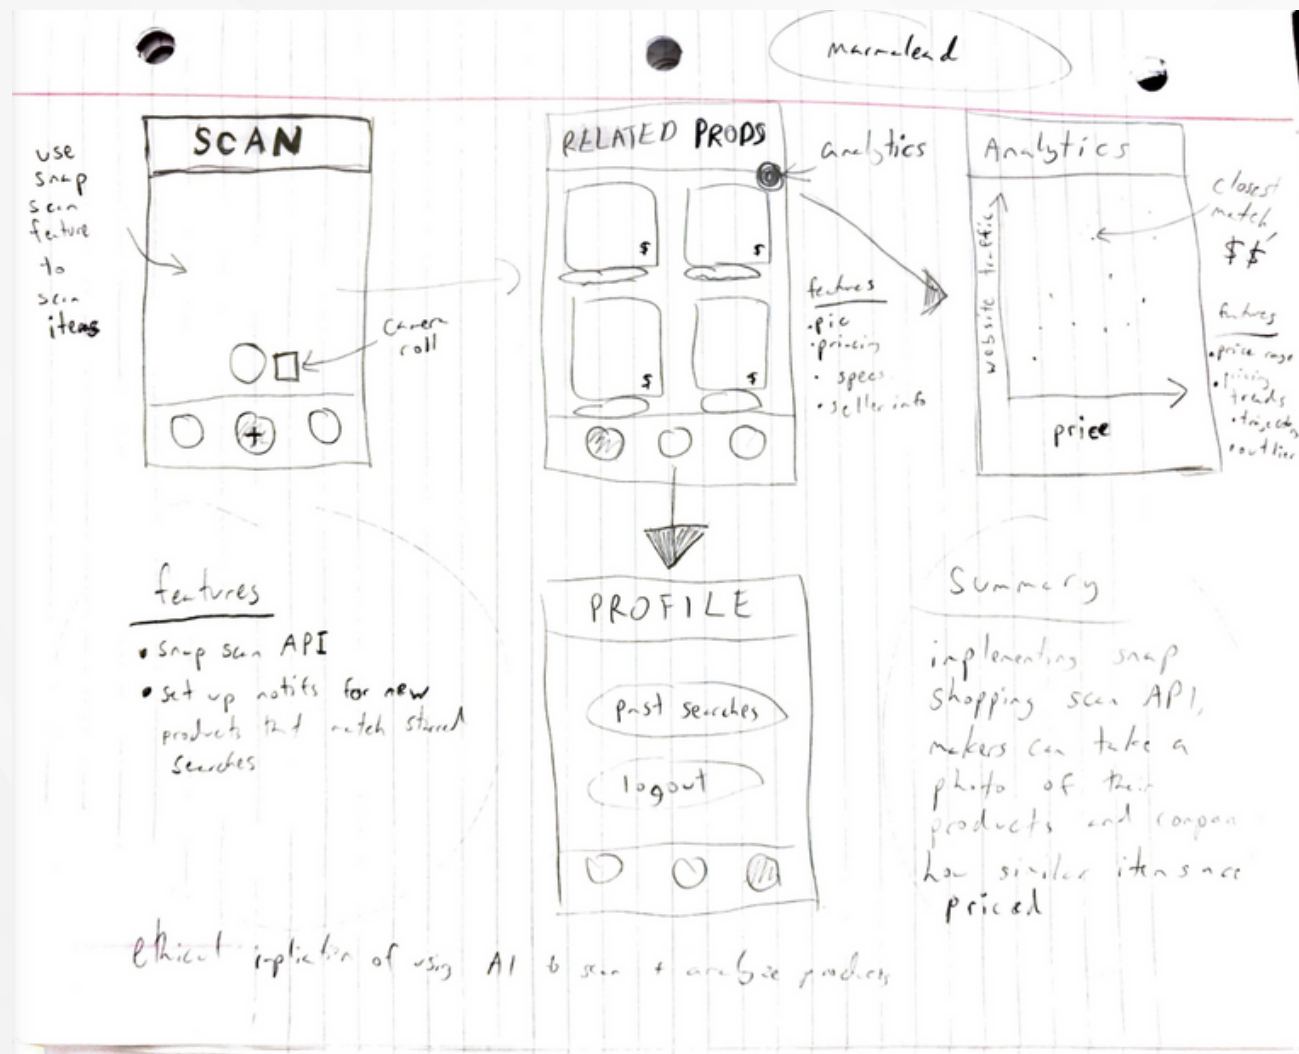 marmalead
SCAN
use
snap
scan
feature
to
scan
items
camera
roll
+
RELATED PRODS
analytics
$
$
$
$
features
• pic
• pricing
• specs
• seller info
Analytics
website traffic
price
closest
match
$$
features
• price range
• pricing
trends
• trajectory
• outlier
features
• snap scan API
• set up notifs for new
products that match starred
searches
PROFILE
past searches
logout
Summary
implementing snap
shopping scan API,
makers can take a
photo of their
products and compare
how similar items are
priced
ethical implication of using AI to scan + analyze products